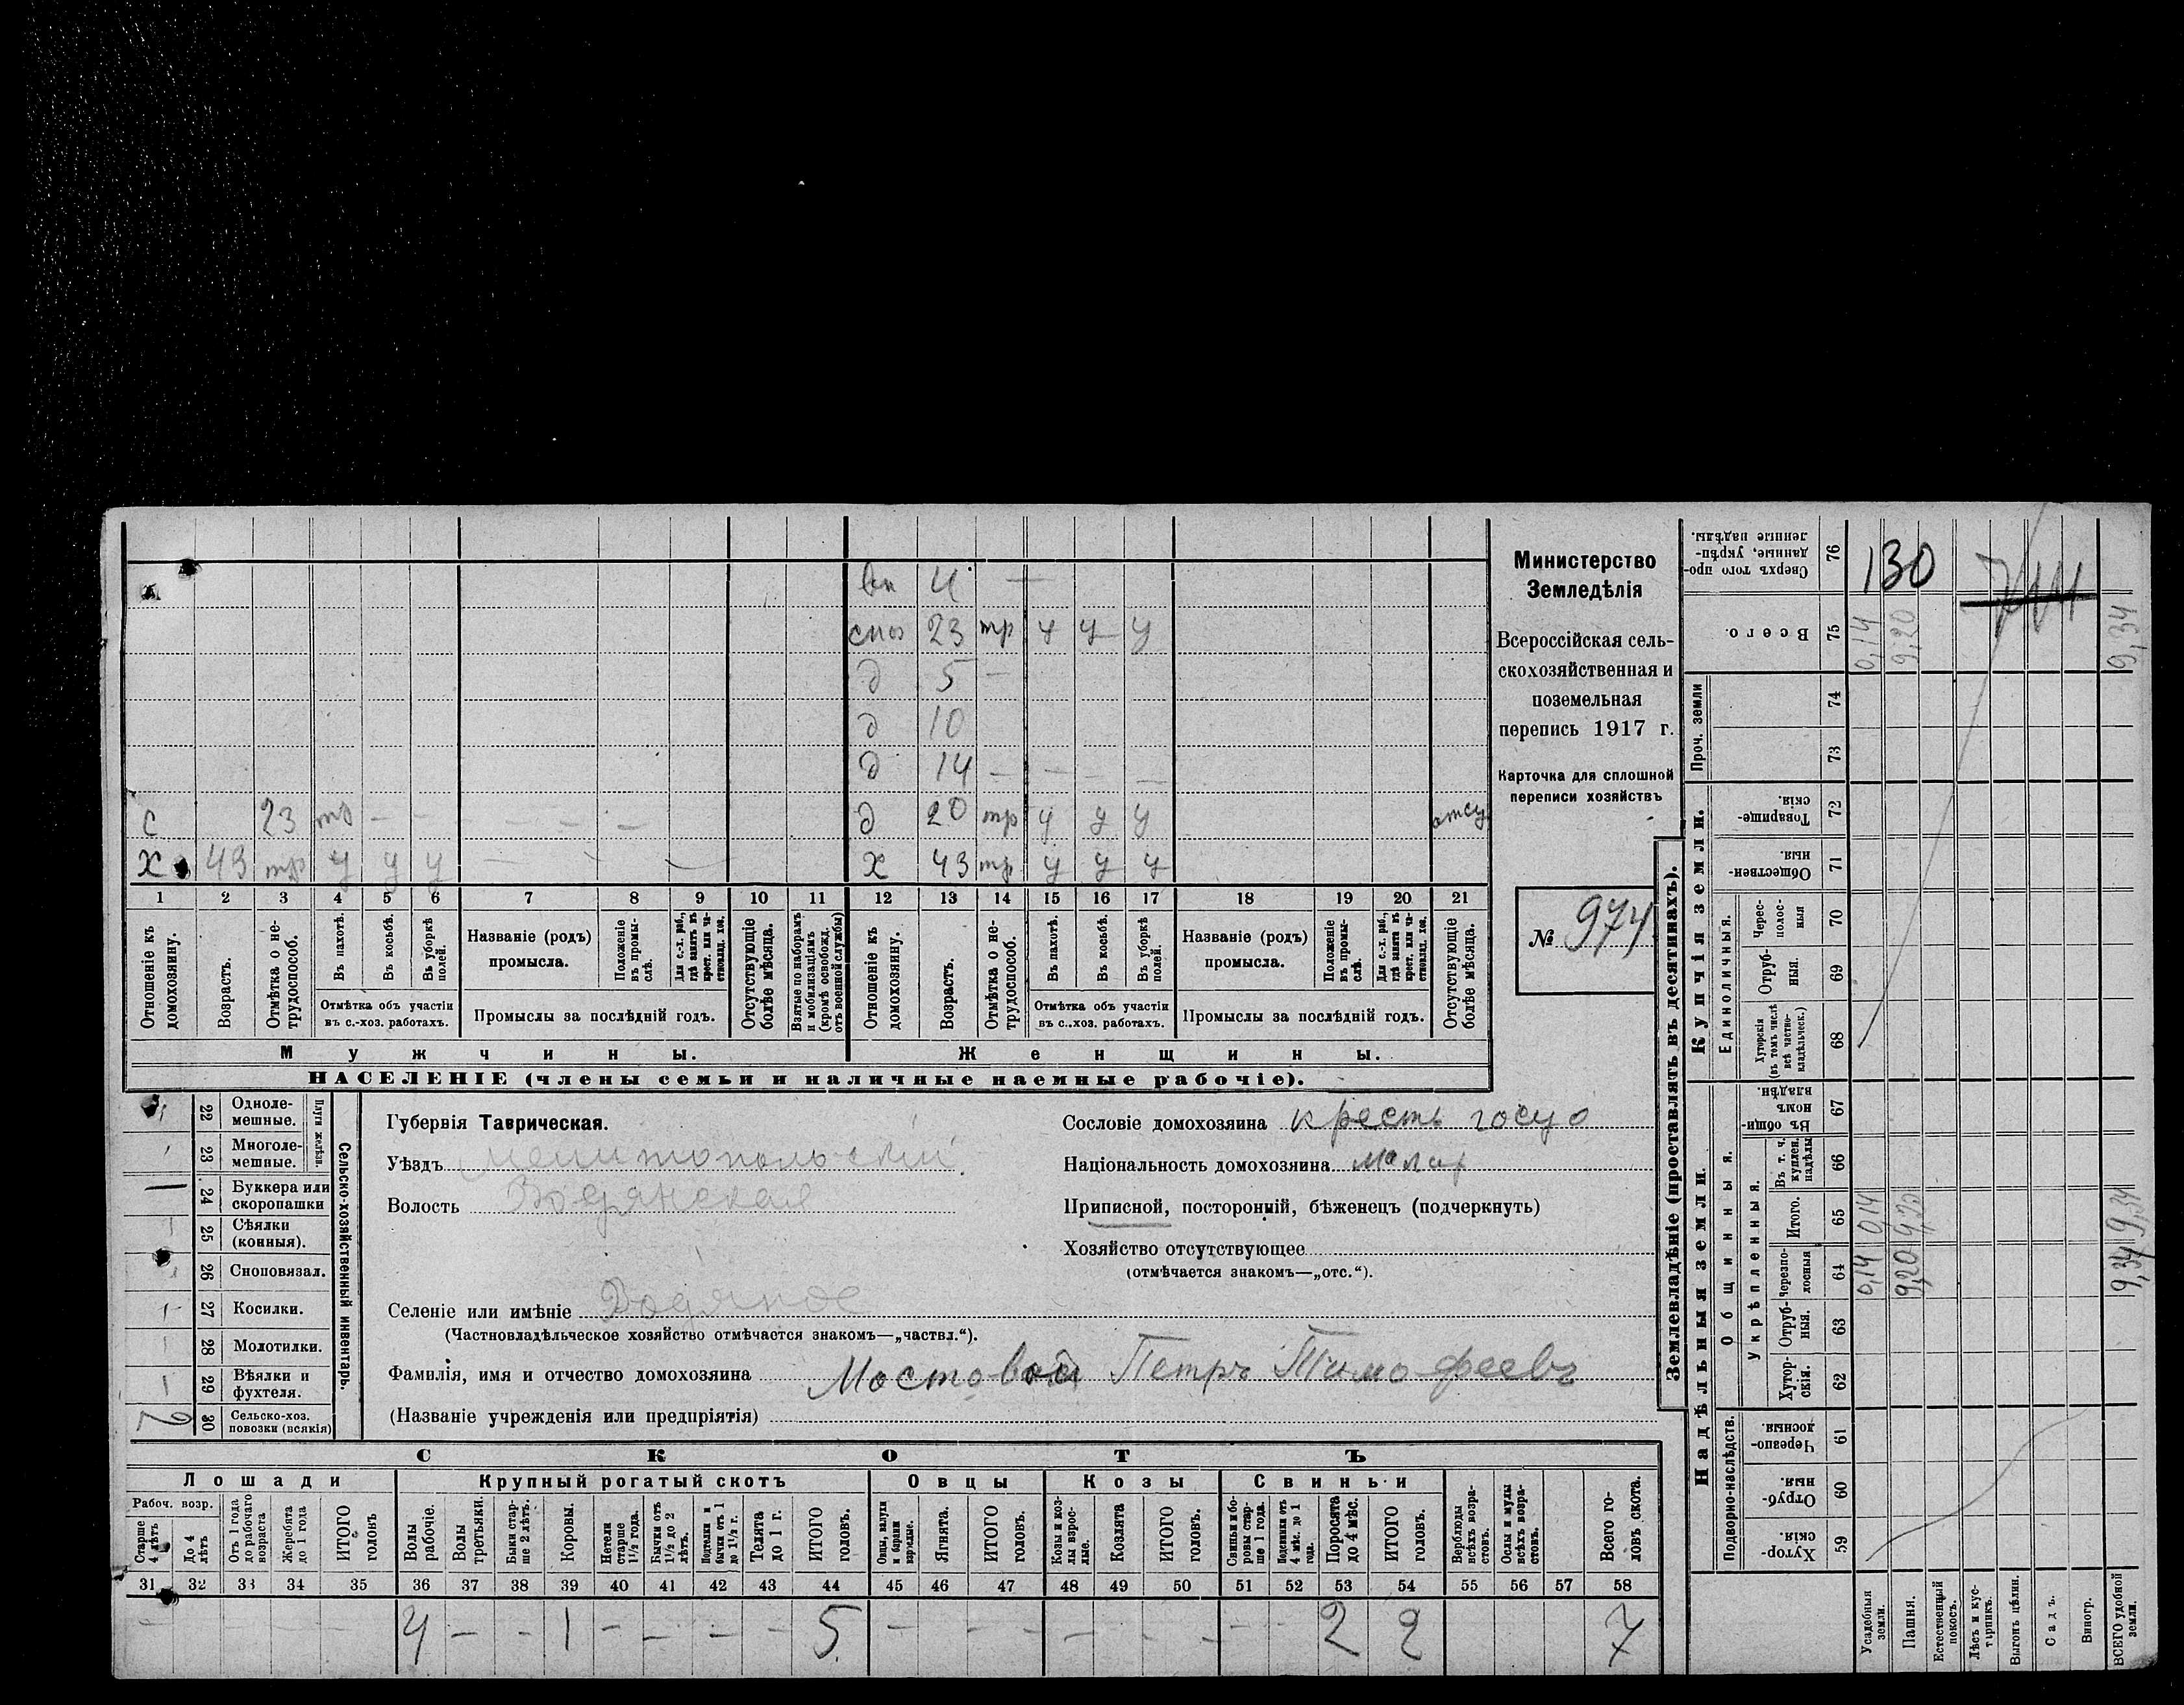 вн 4 —
сноз 23 тр у у у
д 5 —
д 10
д 14 — — — —
с 23 тр — — — — — — д 20 тр у у у отсу
х 43 тр у у у — — — х 43 тр у у у
1 2 3 4 5 6 7 8 9 10 11 12 13 14 15 16 17 18 19 20 21
Отношеніе къ домохозяину.
Возрастъ.
Отмѣтка о не-
трудоспособ.
Въ пахотѣ.
Въ косьбѣ.
Въ уборкѣ
полей.
Отмѣтка объ участіи
въ с.-хоз. работахъ.
Названіе (родъ)
промысла.
Положеніе
въ промы-
слѣ.
Для с.-х. раб.,
гдѣ занятъ въ
крест. или ча-
стновлад. хоз.
Промыслы за послѣдній годъ.
Отсутствующіе
болѣе мѣсяца.
Взятые по наборамъ
и мобилизаціямъ
(кромѣ освобожд.
отъ военной службы)
Отношеніе къ
домохозяину.
Возрастъ.
Отмѣтка о не-
трудоспособ.
Въ пахотѣ.
Въ косьбѣ.
Въ уборкѣ
полей.
Отмѣтка объ участіи
въ с..хоз. работахъ.
Названіе (родъ)
промысла.
Положеніе
въ промы-
слѣ.
Для с.-х. раб.,
гдѣ занята въ
крест. или ча-
стновлад. хоз.
Промыслы за послѣдній годъ.
Отсутствующіе
болѣе мѣсяца.
Мужчины.
Женщины.
НАСЕЛЕНІЕ (члены семьи и наличные наемные рабочіе).
Министерство
Земледѣлія
Всероссійская сель-
скохозяйственная и
поземельная
перепись 1917 г.
Карточка для сплошной
переписи хозяйствъ
№ 974
22 Одноле-
мешные.
23 Многоле-
мешные.
Плуги желѣзн.
24 Буккера или
скоропашки
25 Сѣялки
(конныя).
26 Сноповязал.
27 Косилки.
28 Молотилки.
29 Вѣялки и
фухтеля.
30 Сельско-хоз.
повозки (всякія)
Сельско-хозяйственный инвентарь.
Губернія Таврическая.
Уѣздъ Мелитопольскій.
Волость Водянская
Селеніе или имѣніе Водяное
(Частновладѣльческое хозяйство отмѣчается знакомъ—„частвл.“).
Фамилія, имя и отчество домохозяина Мостовой Петръ Тимофеевъ
(Названіе учрежденія или предпріятія)
Сословіе домохозяина кресть госуд
Національность домохозяина малор
Приписной, посторонній, бѣженецъ (подчеркнуть)
Хозяйство отсутствующее
(отмѣчается знакомъ—„отс.“).
СКОТЪ
Лошади
Крупный рогатый скотъ
Овцы
Козы
Свиньи
Рабоч. возр.
Старше
4 лѣтъ
До 4
лѣтъ
Отъ 1 года
до рабочаго
возраста
Жеребята
до 1 года
ИТОГО
головъ
Волы
рабочіе.
Волы
третьяки.
Быки стар-
ше 2 лѣтъ.
Коровы.
Нетели
старше
1½ года.
Бычки отъ
1½ до 2
лѣтъ.
Подтелки и
бычки отъ 1
до 1½ г.
Телята
до 1 г.
ИТОГО
головъ.
Овцы, валухи
и бараны
взрослые.
Ягнята.
ИТОГО
головъ.
Козы и коз-
лы взрос-
лые.
Козлята
ИТОГО
головъ.
Свиньи и бо-
ровы стар-
ше 1 года.
Подсвинки отъ
4 мѣс. до 1
года.
Поросята
до 4 мѣс.
ИТОГО
головъ.
Верблюды
всѣхъ возра-
стовъ.
Ослы и мулы
всѣхъ возра-
стовъ.
Всего го-
ловъ скота.
31 32 33 34 35 36 37 38 39 40 41 42 43 44 45 46 47 48 49 50 51 52 53 54 55 56 57 58
— — — — 4 — — 1 — — — — 5 — — — — — — — — 2 2 7
Землевладѣніе (проставлять въ десятинахъ).
Надѣльныя земли.
Купчія земли.
Проч. земли
Подворно-наслѣдств.
Общинныя.
Укрѣпленныя.
Единоличныя.
Сверхъ того про-
данные, укрѣп-
ленные надѣлы.
76
130
Всего.
75
0,14
9,20
9,34
74
73
Товарище-
скія.
72
Обществен-
ныя.
71
Черес-
полос-
ныя
70
Отруб-
ныя.
69
Хуторскія
(въ томъ числѣ
всѣ частно-
владѣльческ.)
68
Въ общин-
номъ
владѣн.
67
Въ т. ч.
куплен.
надѣлы
66
Итого.
65
0,14
9,20
9,34
Черезпо-
лосныя
64
0,14
9,20
9,34
Отруб-
ныя.
63
Хутор-
скія.
62
Черезпо-
лосныя.
61
Отруб-
ныя.
60
Хутор-
скія.
59
Усадебныя
земли.
Пашня.
Естественный
покосъ.
Лѣсъ и кус-
тарникъ.
Выгонъ цѣлин.
Садъ.
Виногр.
ВСЕГО удобной
земли.